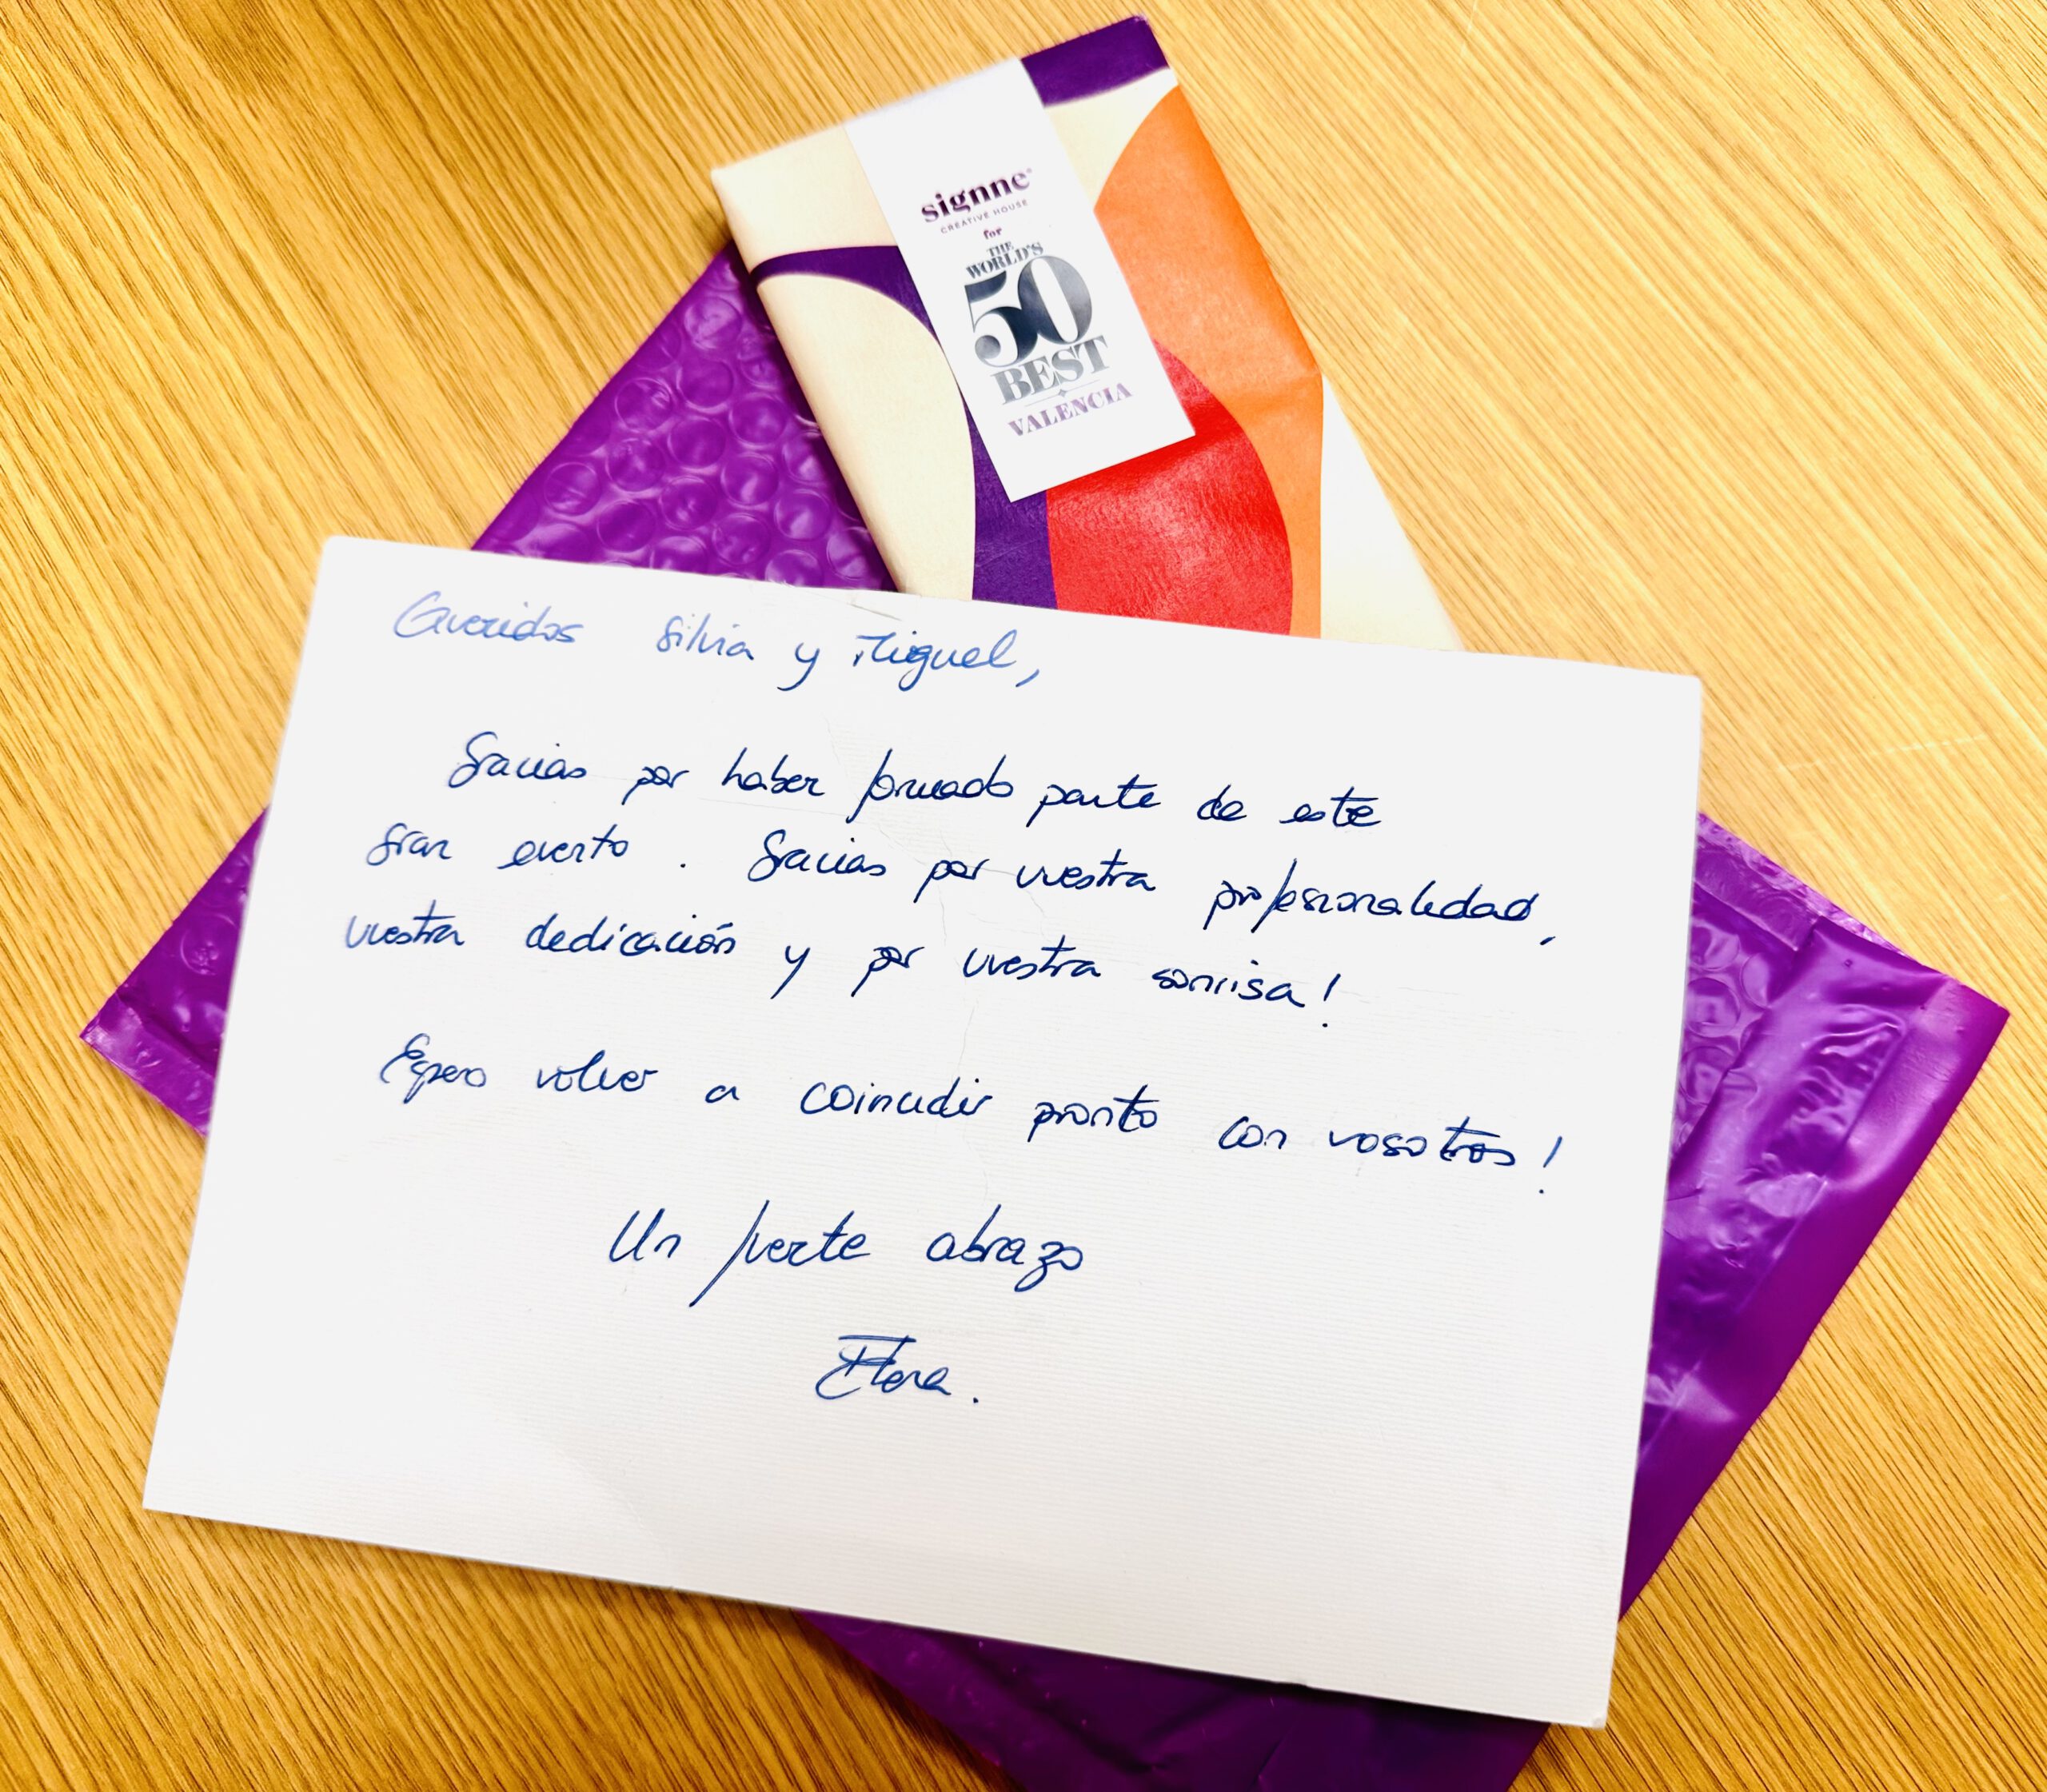 signne
CREATIVE HOUSE
for
THE
WORLD'S
50
BEST
VALENCIA
Queridos Silvia y Miguel,
Gracias por haber formado parte de este
gran evento. Gracias por vuestra profesionalidad,
vuestra dedicación y por vuestra sonrisa!
Espero volver a coincidir pronto con vosotros!
Un fuerte abrazo
Flora.